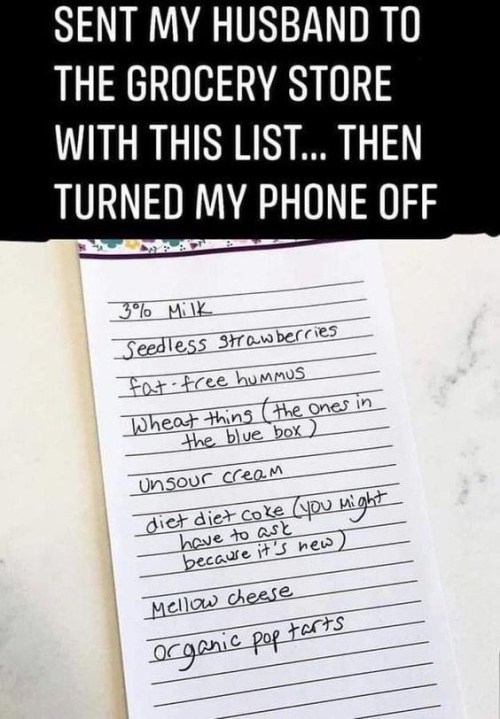 SENT MY HUSBAND TO
THE GROCERY STORE
WITH THIS LIST... THEN
TURNED MY PHONE OFF
3% Milk
Seedless strawberries
fat-free hummus
Wheat thing (the ones in
the blue box)
Unsour cream
diet diet coke (you might
have to ask
because it's new)
Mellow cheese
organic pop tarts